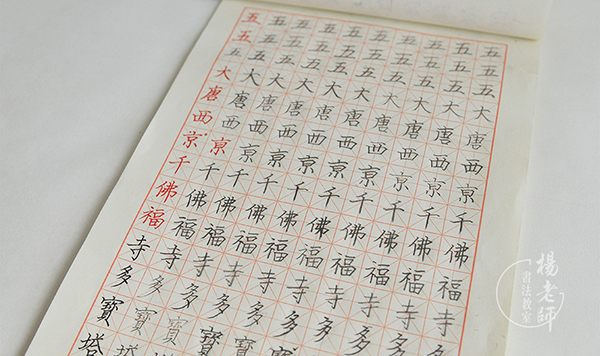 五五五五五五五五五五
五五五五五五五五五五
五五五五五五五五五五
大大大大大大大大大大
唐唐唐唐唐唐唐唐唐唐
西西西西西西西西西西
京京京京京京京京京京
千千千千千千千千千千
佛佛佛佛佛佛佛佛佛佛
福福福福福福福福福福
寺寺寺寺寺寺寺寺寺寺
多多多多多多多多多
寶寶寶寶寶寶
塔塔塔
楊老師
書法教室